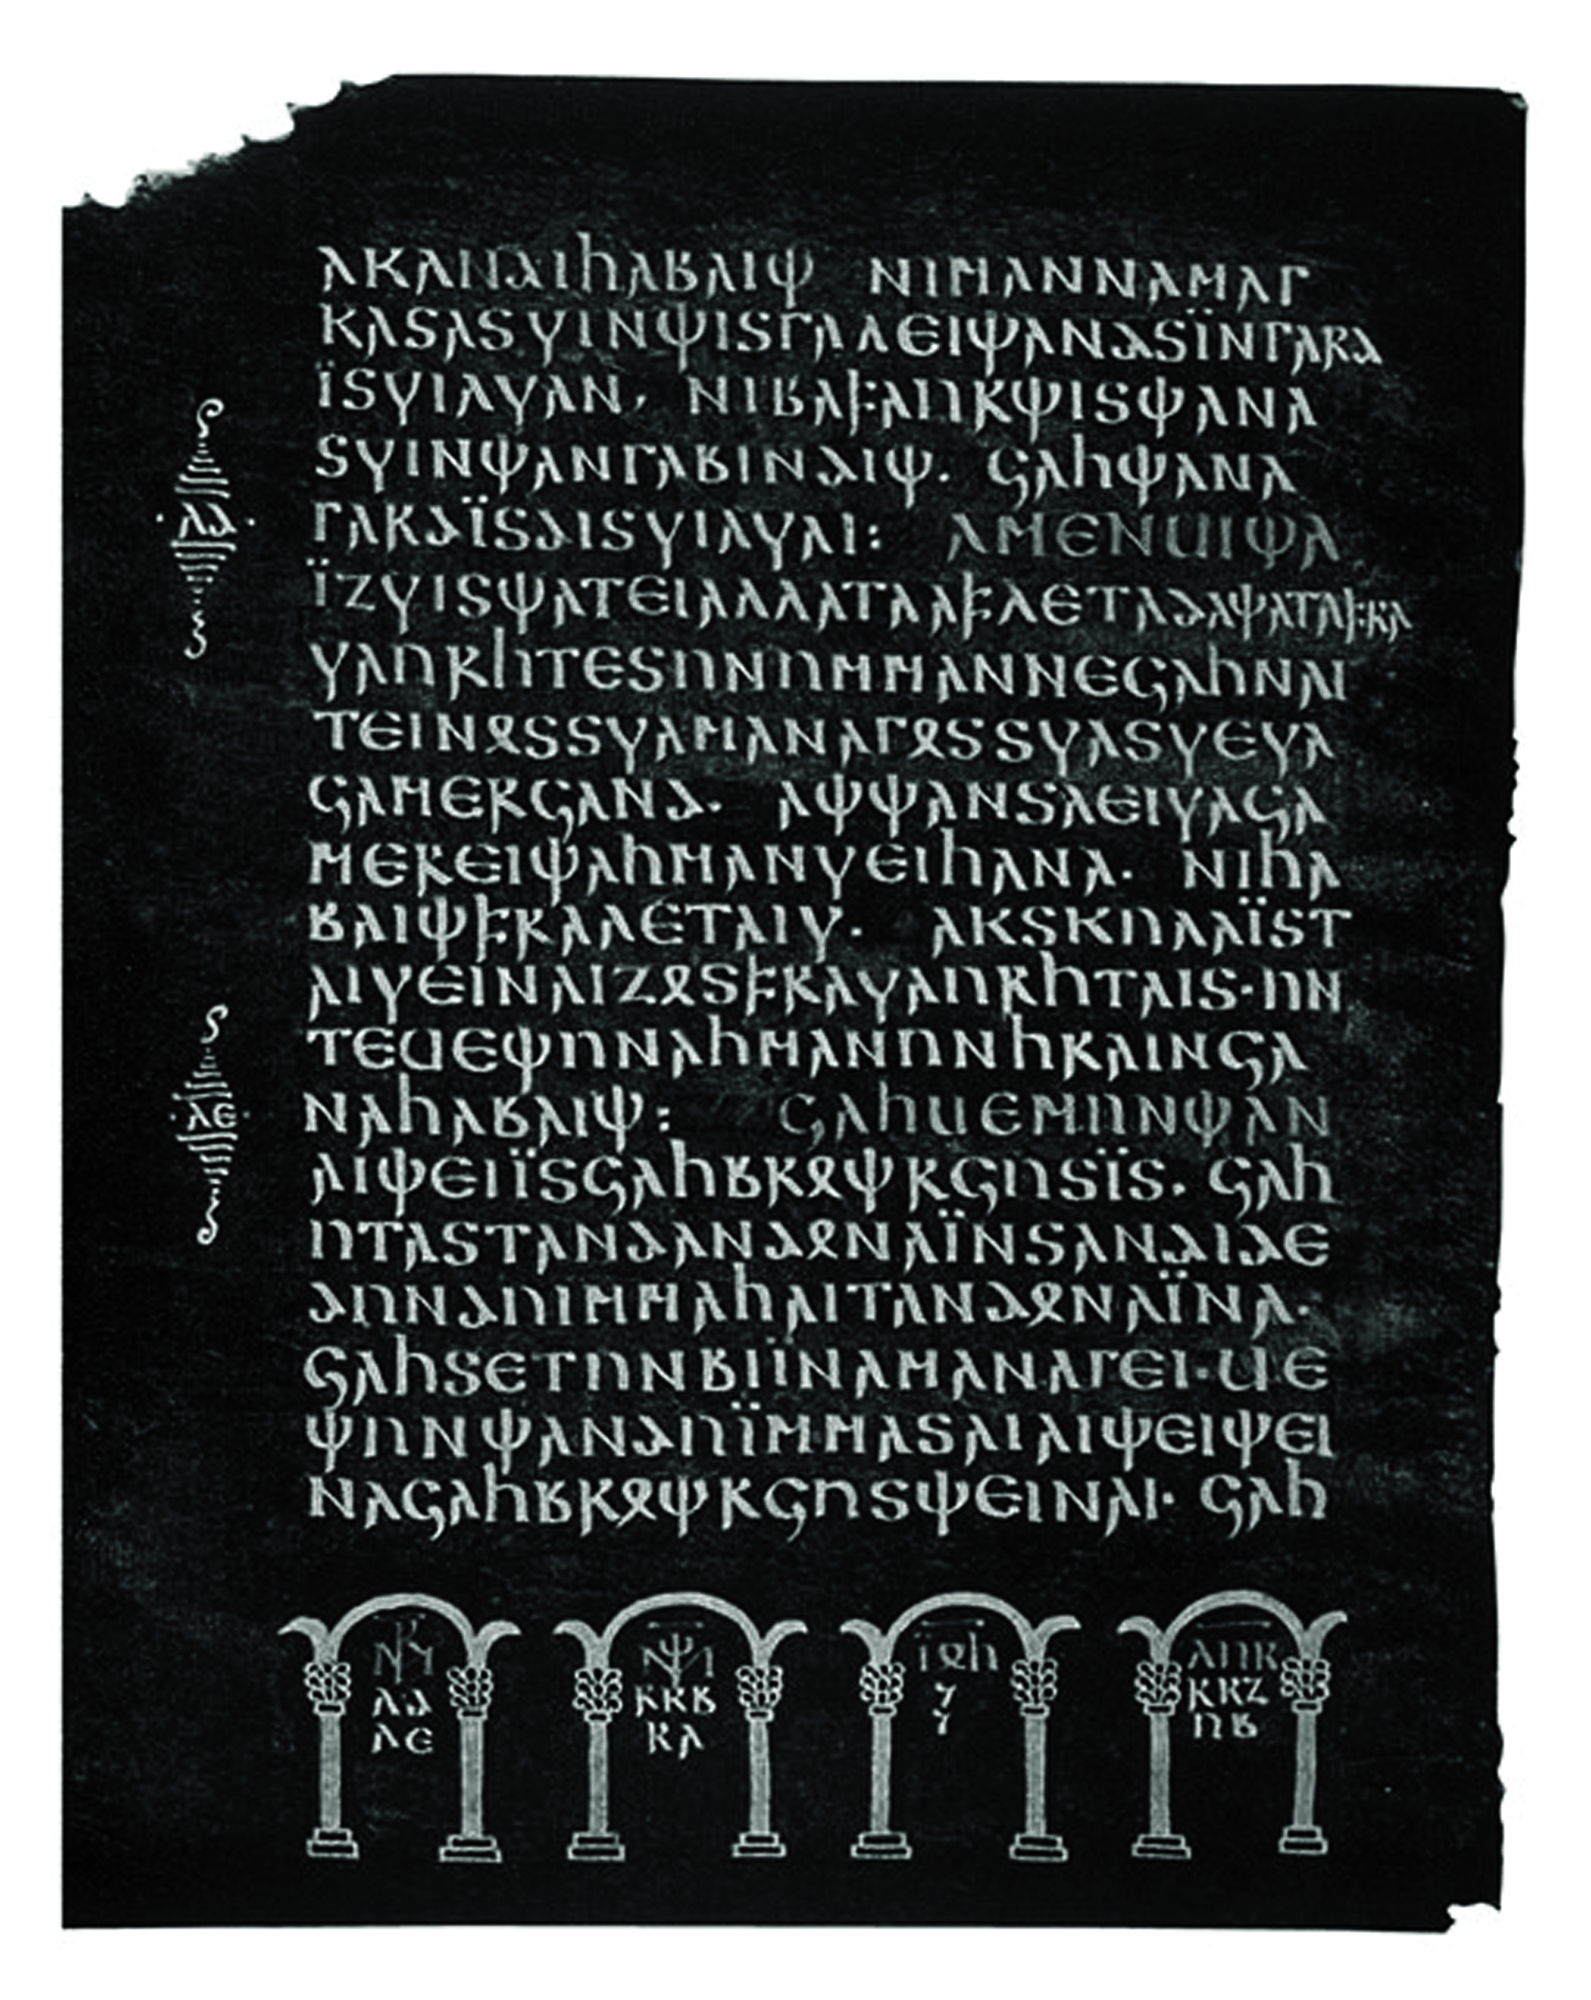 𐌰𐌺𐌰𐌽𐌳𐌹𐌷𐌰𐌱𐌰𐌹𐌸 𐌽𐌹𐌼𐌰𐌽𐌽𐌰𐌼𐌰𐌲
𐌺𐌰𐍃𐌰𐍃𐍅𐌹𐌽𐌸𐌹𐍃𐌲𐌰𐌻𐌴𐌹𐌸𐌰𐌽𐌳𐍃𐌹̈𐌽𐌲𐌰𐍂𐌳
𐌹̈𐍃𐍅𐌹𐌻𐍅𐌰𐌽· 𐌽𐌹𐌱𐌰𐍆𐌰𐌿𐍂𐌸𐌹𐍃𐌸𐌰𐌽𐌰
𐍃𐍅𐌹𐌽𐌸𐌰𐌽𐌲𐌰𐌱𐌹𐌽𐌳𐌹𐌸· 𐌾𐌰𐌷𐌸𐌰𐌽𐌰
𐌲𐌰𐍂𐌳𐌹̈𐍃𐌳𐌹𐍃𐍅𐌹𐌻𐍅𐌰𐌹: 𐌰𐌼𐌴𐌽𐌵𐌹𐌸𐌰
𐌹̈𐌶𐍅𐌹𐍃𐌸𐌰𐍄𐌴𐌹𐌰𐌻𐌻𐌰𐍄𐌰𐌰𐍆𐌻𐌴𐍄𐌰𐌳𐌰𐌸𐌰𐍄𐌰𐍆𐍂𐌰
𐍅𐌰𐌿𐍂𐌷𐍄𐌴𐍃𐌿𐌽𐌿𐌼𐌼𐌰𐌽𐌽𐌴𐌾𐌰𐌷𐌽𐌰𐌹
𐍄𐌴𐌹𐌽𐍉𐍃𐍃𐍅𐌰𐌼𐌰𐌽𐌰𐌲𐍉𐍃𐍃𐍅𐌰𐍃𐍅𐌴𐍅𐌰
𐌾𐌰𐌼𐌴𐍂𐌾𐌰𐌽𐌳· 𐌰𐌸𐌸𐌰𐌽𐍃𐌰𐌴𐌹𐍅𐌰𐌾𐌰
𐌼𐌴𐍂𐌴𐌹𐌸𐌰𐌷𐌼𐌰𐌽𐍅𐌴𐌹𐌷𐌰𐌽𐌰· 𐌽𐌹𐌷𐌰
𐌱𐌰𐌹𐌸𐍆𐍂𐌰𐌻𐌴𐍄𐌰𐌹𐍅· 𐌰𐌺𐍃𐌺𐌿𐌻𐌰𐌹̈𐍃𐍄
𐌰𐌹𐍅𐌴𐌹𐌽𐌰𐌹𐌶𐍉𐍃𐍆𐍂𐌰𐍅𐌰𐌿𐍂𐌷𐍄𐌰𐌹𐍃·𐌿𐌽
𐍄𐌴𐌵𐌴𐌸𐌿𐌽𐌰𐌷𐌼𐌰𐌽𐌿𐌽𐌷𐍂𐌰𐌹𐌽𐌾𐌰
𐌽𐌰𐌷𐌰𐌱𐌰𐌹𐌸: 𐌾𐌰𐌷𐌵𐌴𐌼𐌿𐌽𐌸𐌰𐌽
𐌰𐌹𐌸𐌴𐌹𐌹̈𐍃𐌾𐌰𐌷𐌱𐍂𐍉𐌸𐍂𐌾𐌿𐍃𐌹̈𐍃· 𐌾𐌰𐌷
𐌿𐍄𐌰𐍃𐍄𐌰𐌽𐌳𐌰𐌽𐌳𐍉𐌽𐌰𐌹̈𐌽𐍃𐌰𐌽𐌳𐌹𐌳𐌴
𐌳𐌿𐌽𐌳𐌿𐌹𐌼𐌼𐌰𐌷𐌰𐌹𐍄𐌰𐌽𐌳𐍉𐌽𐌰𐌹̈𐌽𐌰·
𐌾𐌰𐌷𐍃𐌴𐍄𐌿𐌽𐌱𐌹𐌹̈𐌽𐌰𐌼𐌰𐌽𐌰𐌲𐌴𐌹·𐌵𐌴
𐌸𐌿𐌽𐌸𐌰𐌽𐌳𐌿𐌹̈𐌼𐌼𐌰𐍃𐌰𐌹𐌰𐌹𐌸𐌴𐌹𐌸𐌴𐌹
𐌽𐌰𐌾𐌰𐌷𐌱𐍂𐍉𐌸𐍂𐌾𐌿𐍃𐌸𐌴𐌹𐌽𐌰𐌹· 𐌾𐌰𐌷
·𐌻𐌳·
·𐌻𐌴·
𐌻𐌳
𐌻𐌴
𐍂𐌺𐌱
𐍂𐌻
𐌹̈𐍉𐌷
𐌻𐌿𐌺
𐍂𐌺𐌶
𐍀𐌱